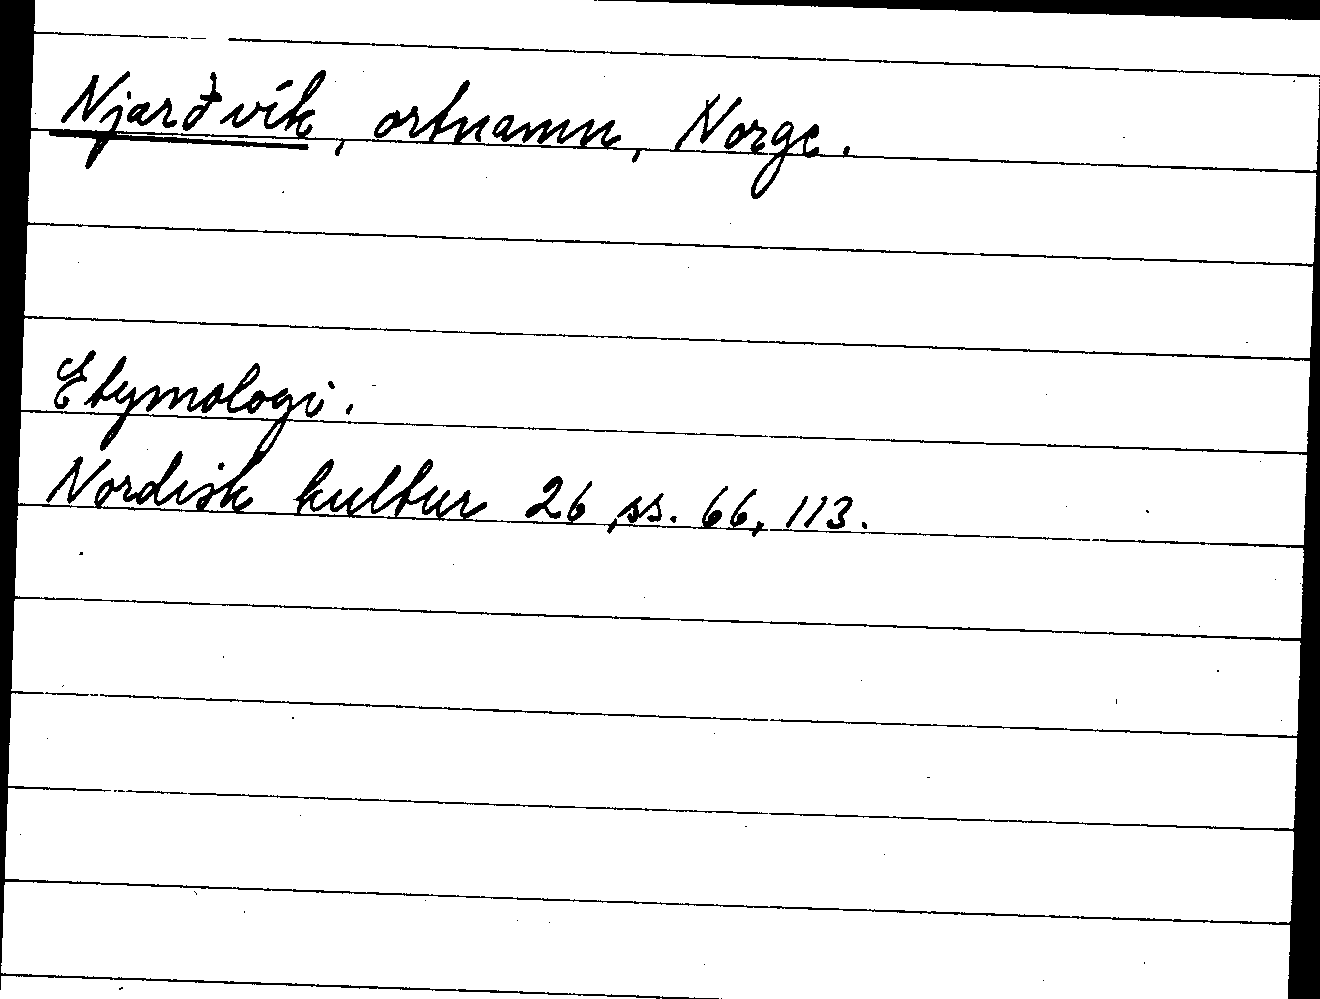 Njarðvík, ortnamn, Norge.
Etymologi.
Nordisk kultur 26, ss. 66, 113.